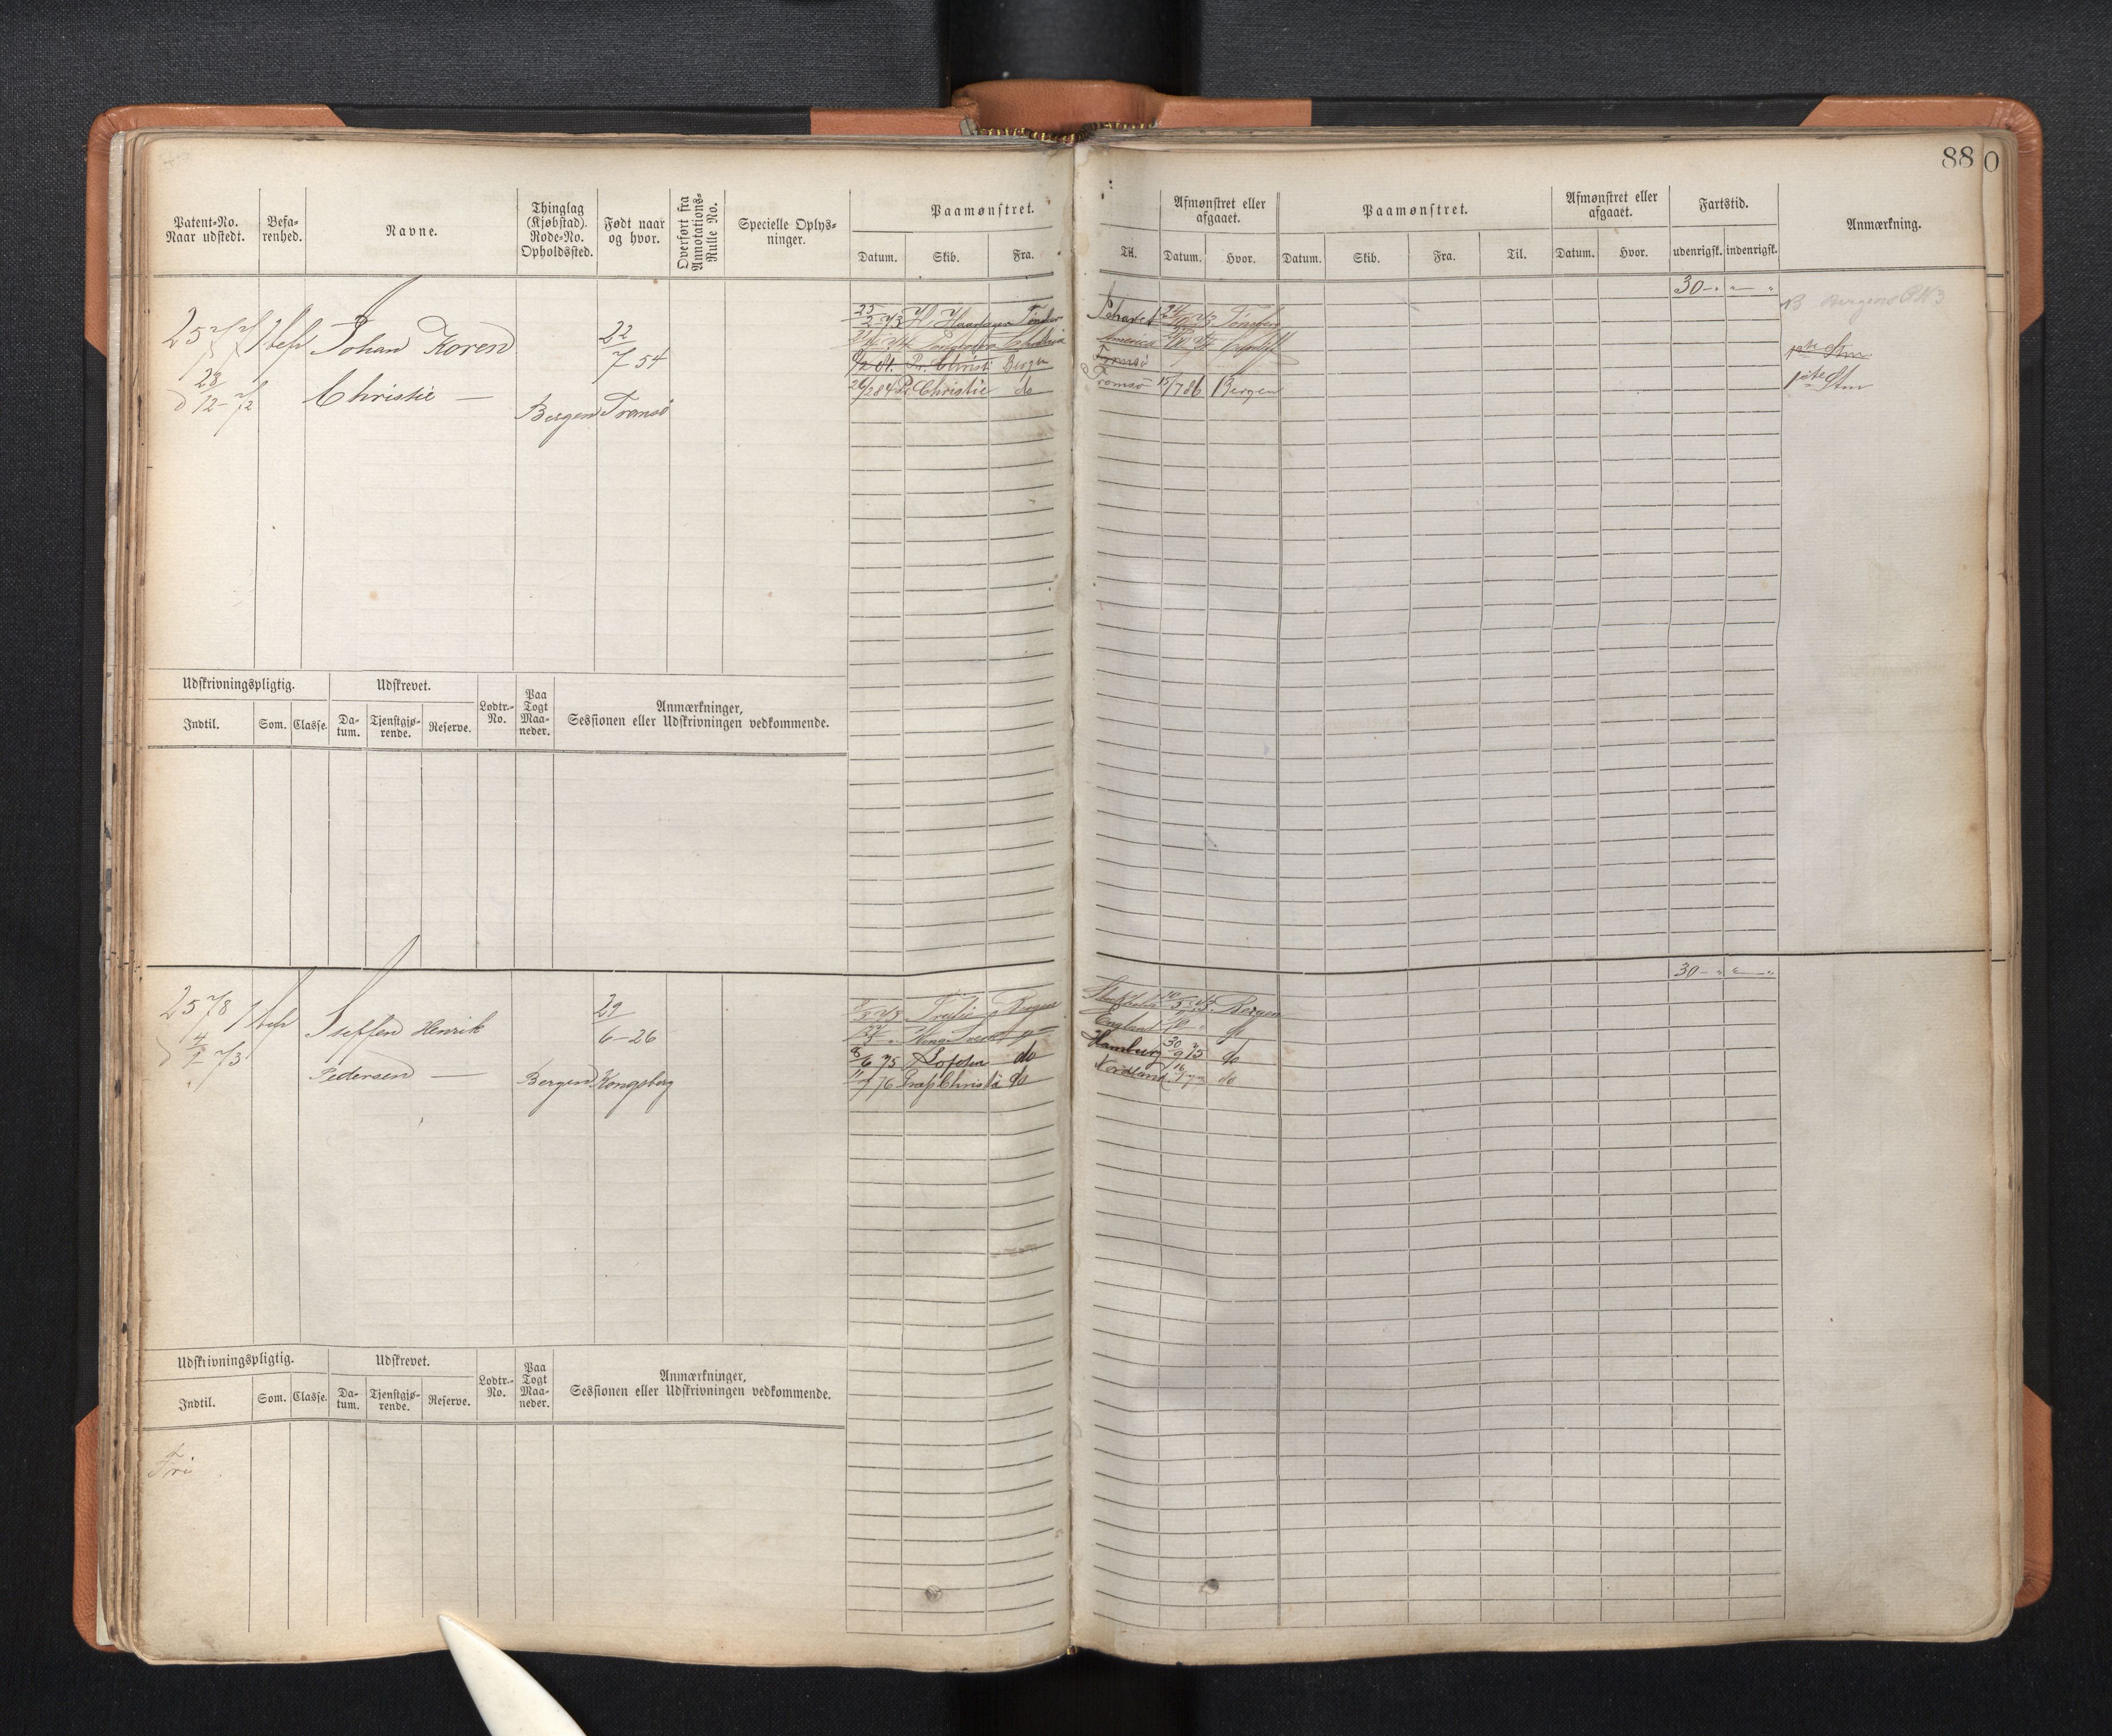 88
0
Patent-No. Naar udstedt.
Befa-renhed.
Navne.
Thinglag (Kjøbstad). Rode-No. Opholdssted.
Født naar og hvor.
Overført fra Annotations-Rulle No.
Specielle Oplys-ninger.
Paamønstret.
Datum.
Skib.
Fra.
Til.
Afmønstret eller afgaaet.
Datum.
Hvor.
Paamønstret.
Datum.
Skib.
Fra.
Til.
Afmønstret eller afgaaet.
Datum.
Hvor.
Fartstid.
udenrigsk.
indenrigsk.
Anmærkning.
2577
Johan Koren
22
7 54
d 28/12-72
Christie —
Bergen
Tromsø
30
Bergens
Bergen
26/2 84 Pr. Christie do
Tromsø
Tromsø 15/7 86 Bergen
1ste Stm
1ste Stm
Udskrivningspligtig.
Indtil.
Som.
Classe.
Udskrevet.
Da-tum.
Tjenstgjø-rende.
Reserve.
Lodtr.-No.
Paa Togt Maa-neder.
Anmærkninger, Sessionen eller Udskrivningen vedkommende.
2578
Steffen Henrik
29
6-26
d 4/1 73
Pedersen —
Bergen
Kongsberg
30
Bergen
Bergen
England
8/6 75 Lofoten do
Hamburg 30/9 75 do
76 Præs Christie do
Nordland do
Udskrivningspligtig.
Indtil.
Som.
Classe.
Udskrevet.
Da-tum.
Tjenstgjø-rende.
Reserve.
Lodtr.-No.
Paa Togt Maa-neder.
Anmærkninger, Sessionen eller Udskrivningen vedkommende.
Fri